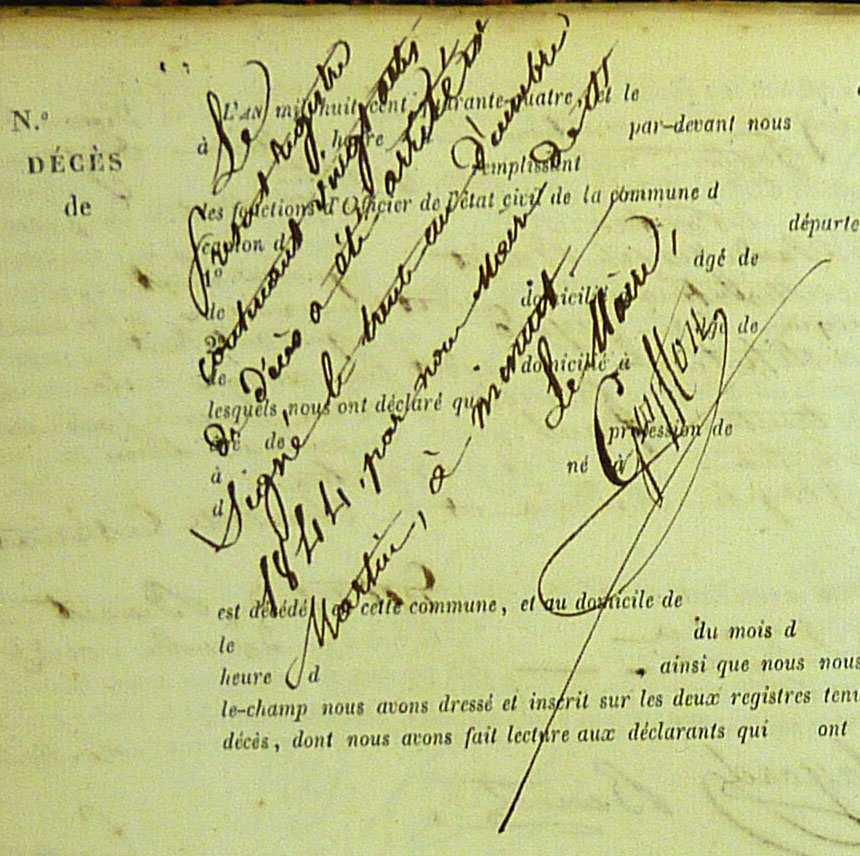 N.o
DÉCÈS
de
L'AN mil huit cent quarante-quatre, et le
à heure par-devant nous
remplissant
les fonctions d'Officier de l'état civil de la commune d
canton d départe
1o âgé de
de domicilié
2o âgé de
de domicilié à
lesquels nous ont déclaré que
âgé de profession de
à né à
d
est décédé en cette commune, et au domicile de
le du mois d
heure d , ainsi que nous nous
le-champ nous avons dressé et inscrit sur les deux registres tenu
décès, dont nous avons fait lecture aux déclarants qui ont
Le
présent registre
contenant vingt actes
de décès a été arrêté &
Signé le trente un décembre
1844, par nous Maire de St
Martin, à minuit
Le Maire,